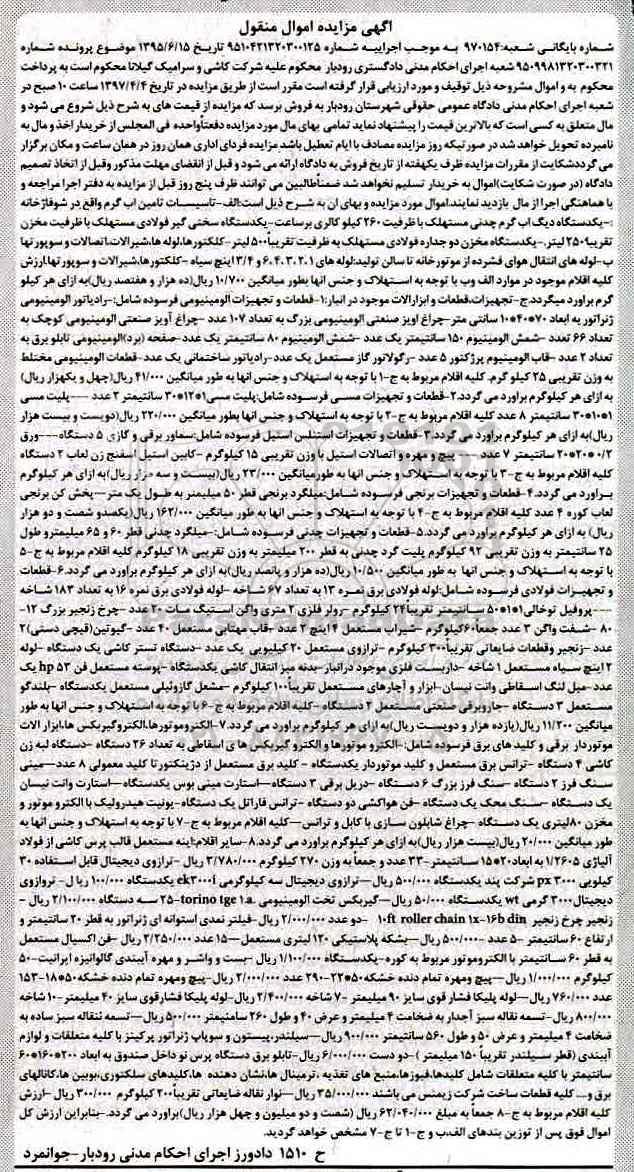 آگهی مزایده اموال منقول
شماره بایگانی شعبه:۹۷۰۱۵۴ به موجب اجراییه شماره ۹۵۱۰۴۲۱۳۲۰۳۰۰۱۲۵ تاریخ ۱۳۹۵/۶/۱۵ موضوع پرونده شماره
۹۵۰۹۹۸۱۳۲۰۳۰۰۳۲۱ شعبه اجرای احکام مدنی دادگستری رودبار محکوم علیه شرکت کاشی و سرامیک گیلانا محکوم است به پرداخت
محکوم به و اموال مشروحه ذیل توقیف و مورد ارزیابی قرار گرفته است مقرر است از طریق مزایده در تاریخ ۱۳۹۷/۴/۴ ساعت ۱۰ صبح در
شعبه اجرای احکام مدنی دادگاه عمومی حقوقی شهرستان رودبار به فروش برسد که مزایده از قیمت های به شرح ذیل شروع می شود و
مال متعلق به کسی است که بالاترین قیمت را پیشنهاد نماید تمامی بهای مال مورد مزایده دفعتاًواحده فی المجلس از خریدار اخذ و مال به
نامبرده تحویل خواهد شد در صورتیکه روز مزایده مصادف با ایام تعطیل باشد.مزایده فردای اداری همان روز در همان ساعت و مکان برگزار
می گرددشکایت از مقررات مزایده ظرف یکهفته از تاریخ فروش به دادگاه ارائه می شود و قبل از انقضای مهلت مذکور وقبل از اتخاذ تصمیم
دادگاه (در صورت شکایت)اموال به خریدار تسلیم نخواهد شد ضمناًطالبین می توانند ظرف پنج روز قبل از مزایده به دفتر اجرا مراجعه و
با هماهنگی اجرا از مال بازدید نمایند.اموال مورد مزایده و بهای آن به شرح ذیل است:الف-تاسیسات تامین آب گرم واقع در شوفاژخانه
:-یکدستگاه دیگ آب گرم چدنی مستهلک با ظرفیت ۲۶۰ کیلو کالری برساعت-یکدستگاه سختی گیر فولادی مستهلک با ظرفیت مخزن
تقریبا۲۵۰ لیتر.-یکدستگاه مخزن دو جداره فولادی مستهلک به ظرفیت تقریبا۵۰۰ً لیتر-کلکتورها،لوله ها،شیرالات،اتصالات و سوپرتها
ب-لوله های انتقال هوای فشرده از موتورخانه تا سالن تولید:لوله های ۱،۲،۳،۴،۶ و ۳/۴ اینچ سیاه -کلکتورها،شیرالات و سوپرتها.ارزش
کلیه اقلام موجود در موارد الف وب با توجه به استهلاک و جنس آنها بطور میانگین ۱۰/۷۰۰ ریال(ده هزار و هفتصد ریال)به ازای هر کیلو
گرم برآورد میگردد.ج-تجهیزات،قطعات و ابزارالات موجود در انبار:۱-قطعات و تجهیزات آلومینیومی فرسوده شامل:-رادیاتور آلومینیومی
ژنراتور به ابعاد ۷۰*۴۰*۱۰ سانتی متر-چراغ آویز صنعتی آلومینیومی بزرگ به تعداد ۱۰۷ عدد -چراغ آویز صنعتی آلومینیومی کوچک به
تعداد ۶۶ تعدد -شمش آلومینیوم ۱۵۰ سانتیمتر یک عدد -شمش آلومینیوم ۸۰ سانتیمتر یک عدد-صفحه (برد)آلومینیومی تابلو برق به
تعداد ۲ عدد -قاب آلومینیوم پرژکتور ۵ عدد -رگولاتور گاز مستعمل یک عدد-رادیاتور ساختمانی یک عدد-قطعات آلومینیومی مختلط
به وزن تقریبی ۲۵ کیلو گرم. کلیه اقلام مربوط به ج-۱ با توجه به استهلاک و جنس آنها به طور میانگین ۴۱/۰۰۰ ریال(چهل و یکهزار ریال)
به ازای هر کیلوگرم برآورد می گردد.۲-قطعات و تجهیزات مسی فرسوده شامل:پلیت مسی۱*۱۲*۳۰ سانتیمتر ۲ عدد ---پلیت مسی
۱*۱۰*۳۰ سانتیمتر ۸ عدد کلیه اقلام مربوط به ج-۲ با توجه به استهلاک و جنس آنها بطور میانگین ۲۲۰/۰۰۰ ریال(دویست و بیست هزار
ریال)به ازای هر کیلوگرم برآورد می گردد.۳-قطعات و تجهیزات استنلس استیل فرسوده شامل:سماور برقی و گازی ۵ دستگاه---ورق
۰/۲*۲۰*۲۰ سانتیمتر ۷ عدد --- پیچ و مهره و اتصالات استیل با وزن تقریبی ۱۵ کیلوگرم -کابین استیل اسفنج زن لعاب ۲ دستگاه
کلیه اقلام مربوط به ج-۳ با توجه به استهلاک و جنس آنها به طورمیانگین ۲۳/۰۰۰ ریال(بیست و سه هزار ریال)به ازای هر کیلوگرم
برآورد می گردد.۴-قطعات و تجهیزات برنجی فرسوده شامل:میلگرد برنجی قطر ۵۰ میلیمتر به طول یک متر—پخش کن برنجی
لعاب کوره ۴ عدد کلیه اقلام مربوط به ج-۴ با توجه به استهلاک و جنس آنها به طور میانگین ۱۶۲/۰۰۰ ریال(یکصدو شصت و دو هزار
ریال) به ازای هر کیلوگرم برآورد می گردد.۵-قطعات و تجهیزات چدنی فرسوده شامل:-میلگرد چدنی قطر ۶۰ و ۶۵ میلیمترو طول
۲۵ سانتیمتر به وزن تقریبی ۹۲ کیلوگرم پلیت گرد چدنی به قطر ۲۰۰ میلیمتر به وزن تقریبی ۱۸ کیلوگرم کلیه اقلام مربوط به ج-۵
با توجه به استهلاک و جنس آنها به طور میانگین ۱۰/۵۰۰ ریال(ده هزار و پانصد ریال)به ازای هر کیلوگرم برآورد می گردد.۶-قطعات
و تجهیزات فولادی فرسوده شامل:لوله فولادی برق نمره ۱۳ به تعداد ۶۷ شاخه -لوله فولادی برق نمره ۱۶ به تعداد ۱۸۳ شاخه
---پروفیل توخالی۱*۱*۵۰ سانتیمتر تقریبا۲۴ً کیلوگرم -رولر فلزی ۲ متری واگن استیگ مات ۲۰ عدد -چرخ زنجیر بزرگ ۱۲-
۸۰ -شفت واگن ۳ عدد جمعا۶۰کیلوگرم -شیراب مستعمل ۴ اینچ ۲ عدد -قاب مهتابی مستعمل ۴۰ عدد -گیوتین(قیچی دستی)۲
عدد -زنجیر وقطعات ضایعاتی تقریبا۳۰۰ً کیلوگرم -ترازوی مستعمل ۲۰ کیلیویی یک عدد -دستگاه تستر کاشی یک دستگاه -لوله
۲ اینچ سیاه مستعمل ۱ شاخه -داربست فلزی موجود درانبار-بدنه میز انتقال کاشی یکدستگاه -پوسته مستعمل فن ۵۳ hp یک
عدد-میل لنگ اسقاطی وانت نیسان-ابزار و آچارهای مستعمل تقریبا۱۰۰ً کیلوگرم -مشعل گازوئیلی مستعمل یکدستگاه -بلندگو
مستعمل ۳ دستگاه -جاروبرقی صنعتی مستعمل ۲ دستگاه -کلیه اقلام مربوط به ج-۶ با توجه به استهلاک و جنس آنها به طور
میانگین ۱۱/۲۰۰ ریال(یازده هزار و دویست ریال)به ازای هر کیلوگرم برآورد می گردد.۷-الکتروموتورها،الکتروگیربکس ها،ابزار الات
موتوردار برقی و کلید های برق فرسوده شامل:-الکترو موتورها و الکترو گیربکس ها ی اسقاطی به تعداد ۲۶ دستگاه -دستگاه لبه زن
کاشی ۴ دستگاه -ترانس برق مستعمل و کلید موتوردار یکدستگاه - کلید برق مستعمل از دژینکتورتا کلید معمولی ۸ عدد—مینی
سنگ فرز ۲ دستگاه -سنگ فرز بزرگ ۶ دستگاه -دریل برقی ۳ دستگاه—استارت مینی بوس یکدستگاه—استارت وانت نیسان
یک دستگاه -سنگ محک یک دستگاه -فن هواکشی دو دستگاه -ترانس فاراتل یک دستگاه-یونیت هیدرولیک با الکترو موتور و
مخزن ۸۰لیتری یک دستگاه -چراغ شابلون سازی با کابل و ترانس—کلیه اقلام مربوط به ج-۷ با توجه به استهلاک و جنس آنها به
طور میانگین ۲۰/۰۰۰ ریال(بیست هزار ریال)به ازای هر کیلوگرم برآورد می گردد.۸-سایر اقلام:آینه مستعمل قالب پرس کاشی از فولاد
آلیاژی ۱/۲۶۰۵ به ابعاد۲۰*۱۵ سانتیمتر -۳۳ عدد و جمعاً به وزن ۲۷۰ کیلوگرم ۳/۷۸۰/۰۰۰ ریال -ترازوی دیجیتال قابل استفاده ۳۰
کیلویی ۳۰۰۰ px شرکت پند یکدستگاه ۵۰۰/۰۰۰ ریال—ترازوی دیجیتال سه کیلوگرمی ek۳۰۰۰i یکدستگاه ۱۰۰/۰۰۰ ریال- تروازوی
دیجیتال۳۰۰۰ گرمی wt یکدستگاه ۵۰/۰۰۰ ریال—گیربکس تخت آلومینیومی torino tge 1.a.-۲۵ سه دستگاه ۲/۱۰۰/۰۰۰ ریال -
زنجیر چرخ زنجیر 10ft roller chain 1x-16b din -دو عدد ۲/۰۰۰/۰۰۰ ریال-فیلتر نمدی استوانه ای ژنراتور به قطر ۲۰ سانتیمتر و
ارتفاع ۶۰ سانتیمتر -۵ عدد -۵۰۰/۰۰۰ ریال—بشکه پلاستیکی ۱۲۰ لیتری مستعمل—۱۵ عدد ۲/۲۵۰/۰۰۰ ریال -فن اکسیال مستعمل
به قطر ۶۰ سانتیمتر با الکتروموتور مربوط به کوره-یکدستگاه ۱/۱۰۰/۰۰۰ ریال-بست و واشر و مهره آببندی گالوانیزه ایرانیت-۵۰
کیلوگرم ۱/۰۰۰/۰۰۰ ریال—پیچ ومهره تمام دنده خشکه۵۰*۲۲-۲۹۰ عدد ۲/۰۰۰/۰۰۰ ریال-پیچ ومهره تمام دنده خشکه۵۰*۱۸-۱۵۳
عدد ۷۶۰/۰۰۰ ریال—لوله پلیکا فشار قوی سایز ۹۰ میلیمتر -۷ شاخه ۲/۴۰۰/۰۰۰ ریال-لوله پلیکا فشارقوی سایز ۴۰ میلیمتر-۱۰ شاخه
۸۰۰/۰۰۰ ریال-تسمه نقاله سبز آجدار به ضخامت ۴ میلیمتر و عرض ۴۰ و طول ۲۶۰ سامتیمتر ۵۰۰/۰۰۰ ریال—تسمه ئنقاله سبز ساده به
ضخامت ۴ میلیمتر و عرض ۵۰ و طول ۵۶۰ سانتیمتر ۹۰۰/۰۰۰ ریال—سیلندر،پیستون و سوپاپ ژنراتور پرکینز با کلیه متعلقات و لوازم
آببندی (قطر سیلندر تقریباً ۱۵۰ میلیمتر )-دو دست ۶/۰۰۰/۰۰۰ ریال-تابلو برق دستگاه پرس نو داخل صندوق به ابعاد ۲۰۰*۱۶۰*۶۰
سانتیمتر با کلیه متعلقات شامل کلیدها،فیوزها،منبع های تغذیه ،ترمینال ها،نشان دهنده ها،کلیدهای سلکتوری،بوبین ها،کانالهای
برق و... کلیه قطعات ساخت شرکت زیمنس می باشند ۳۵/۰۰۰/۰۰۰ ریال-نوار نقاله ضایعاتی تقریبا۲۰۰ً کیلوگرم ۳۰۰/۰۰۰ ریال -ارزش
کلیه اقلام مربوط به ج-۸ جمعاً به مبلغ ۶۲/۰۴۰/۰۰۰ ریال (شصت و دو میلیون و چهل هزار ریال)برآورد می گردد.-بنابراین ارزش کل
اموال فوق پس از توزین بندهای الف،ب و ج-۱ تا ج-۷ مشخص خواهد گردید.
ح ۱۵۱۰ دادورز اجرای احکام مدنی رودبار-جوانمرد